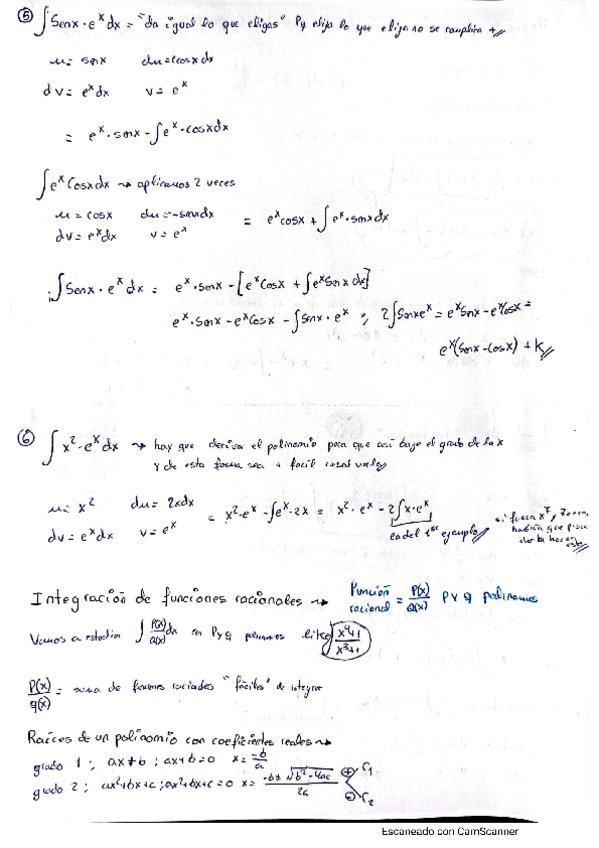 ⑤ ∫Senx·eˣdx = "da igual lo que eligas" Pq elija lo que elija no se complica +//
u = senx du = cosxdx
dv = eˣdx v = eˣ
= eˣ·senx - ∫eˣ·cosxdx
∫eˣCosxdx ⇝ aplicamos 2 veces
u = cosx du = -senxdx = eˣcosx + ∫eˣ·senxdx
dv = eˣdx v = eˣ
∫Senx·eˣdx = eˣ·senx - [eˣCosx + ∫eˣSenxdx]
eˣ·senx - eˣCosx - ∫Senx·eˣ ; 2∫Senxeˣ = eˣSenx - eˣCosx =
eˣ(Senx - Cosx) + K//
⑥ ∫x²·eˣdx ⇝ hay que derivar el polinomio para que así baje el grado de la x
y de esta forma sea + facil
u = x² du = 2xdx = x²·eˣ - ∫eˣ·2x = x²·eˣ - 2∫x·eˣ
dv = eˣdx v = eˣ
ejemplo
si fuera x⁷, 7 veces
habria que
hacer
Integración de funciones racionales ⇝ Función racional = P(x)/Q(x) P y Q polinomios
Vamos a estudiar ∫P(x)/Q(x)dx con P y Q polinomios like x⁴+1/x³+1
P(x)/Q(x) = suma de funciones "fáciles" de integrar
Raíces de un polinomio con coeficientes reales ⇝
grado 1; ax+b; ax+b=0 x = -b/a
grado 2; ax²+bx+c; ax²+bx+c=0 x = -b±√b²-4ac/2a ⊕ r₁ ⊖ r₂
Escaneado con CamScanner